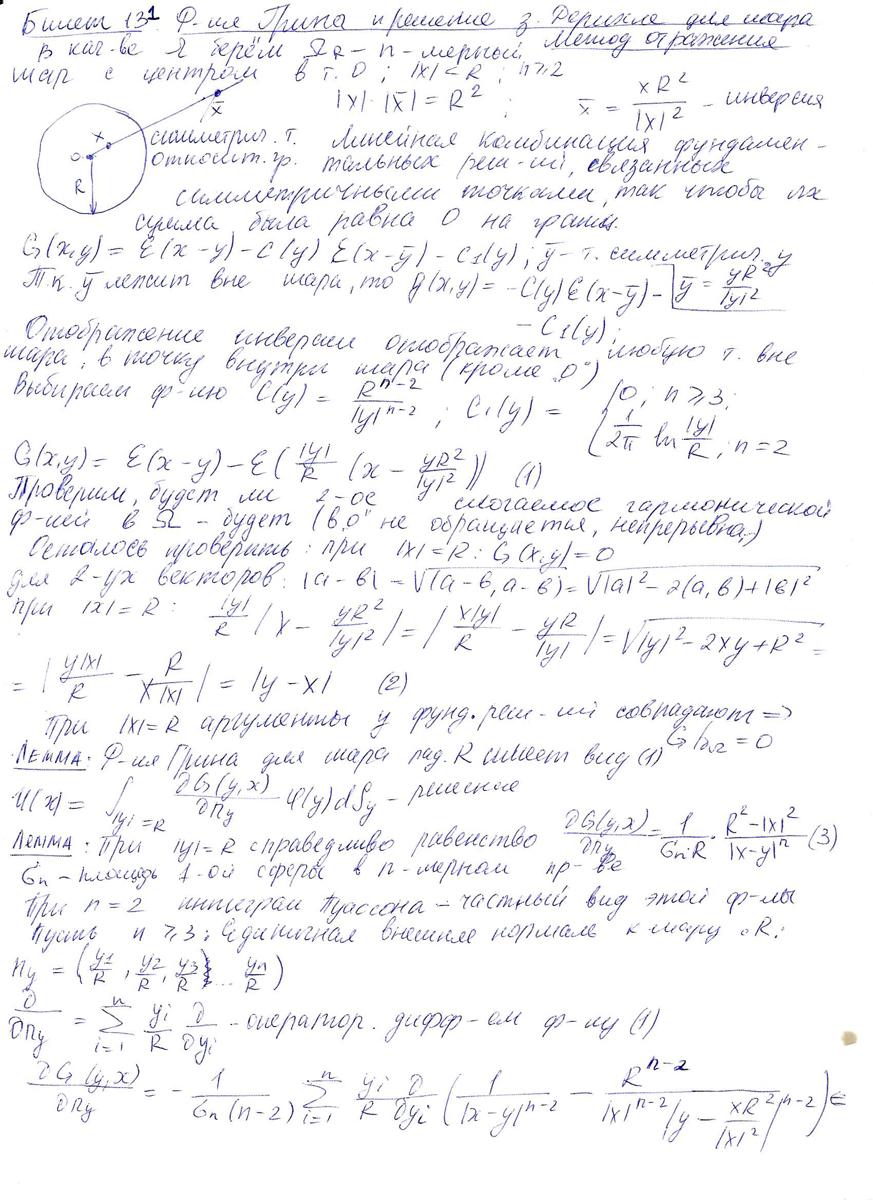 Билет 13¹ Ф-ия Грина и решение з. Дирихле для шара
В кач-ве Ω берём Ω_R – n-мерный, Метод отражения
шар с центром в т. O; |x| < R; n ≥ 2
|x|·|x̄| = R²; x̄ = xR²/|x|² – инверсия
x̄
x
O
R
симметрич. т. Линейная комбинация фундамен-
относит. гр. тальных реш-ий, связанных
симметричными точками, так чтобы их
сумма была равна 0 на границ.
G(x,y) = Ɛ(x-y) - C(y) Ɛ(x-ȳ) - C₁(y); ȳ - т. симметрич. y
Т.к. ȳ лежит вне шара, то g(x,y) = -C(y)Ɛ(x-ȳ) - ȳ = yR²/|y|²
- C₁(y);
Отображение инверсии отображает любую т. вне
шара, в точку внутри шара (кроме "0")
Выбираем ф-ию C(y) = R^(n-2)/|y|^(n-2); C₁(y) = { 0; n ≥ 3; 1/2π ln |y|/R; n = 2
G(x,y) = Ɛ(x-y) - Ɛ(|y|/R (x - yR²/|y|²)) (1)
Проверим, будет ли 2-ое слогаемое гармонической
ф-ией в Ω - будет (в "0" не обращается, непрерывна)
Осталось проверить: при |x| = R: G(x,y) = 0
для 2-ух векторов: |a-b| = √(a-b, a-b) = √|a|² - 2(a,b) + |b|²
при |x| = R: |y|/R |x - yR²/|y|²| = |x|y|/R - yR/|y|| = √|y|² - 2xy + R² =
= |y|x|/R - R/x|x|| = |y-x| (2)
При |x| = R аргументы у фунд. реш-ий совпадают =>
G|∂Ω = 0
Лемма: Ф-ия Грина для шара рад. R имеет вид (1)
U(x) = ∫_|y|=R ∂G(y,x)/∂n_y φ(y)dS_y - решение
Лемма: При |y| = R справедливо равенство ∂G(y,x)/∂n_y = 1/σn·R · R²-|x|²/|x-y|ⁿ (3)
σn - площадь 1-ой сферы в n-мерном пр-ве
При n = 2 интеграл Пуассона - частный вид этой ф-лы
Пусть n ≥ 3; Единичная внешняя нормаль к шару R:
n_y = (y₁/R, y₂/R, y₃/R ... yn/R)
∂/∂n_y = Σ_{i=1}^n yᵢ/R ∂/∂yᵢ - оператор. дифф-ем ф-лу (1)
∂G(y,x)/∂n_y = - 1/σn(n-2) Σ_{i=1}^n yᵢ/R ∂/∂yᵢ (1/|x-y|^(n-2) - R^(n-2)/|x|^(n-2)|y - xR²/|x|²|^(n-2)) =